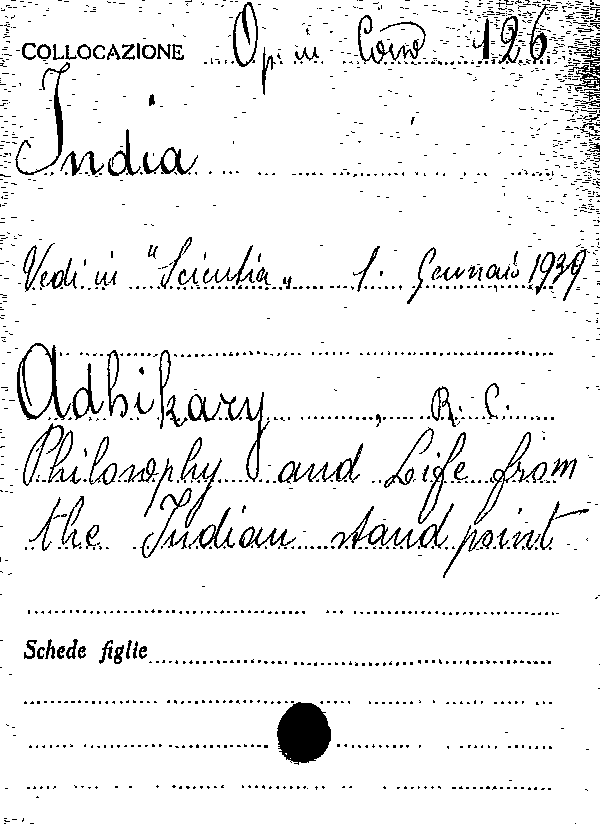 COLLOCAZIONE Op. in Cons 126
India
Vedi in "Scientia„ 1. Gennaio 1939
Adhikary, R. C.
Philosophy and Life from
the Indian stand point
Schede figlie